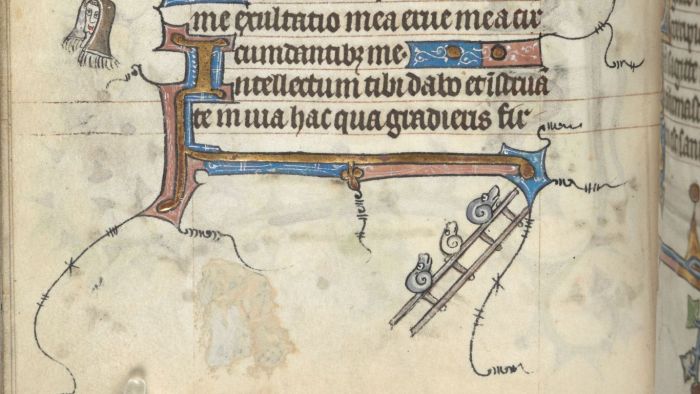 me exultatio mea erue me a cir
cumdantibꝫ me·
Intellectum tibi dabo et īstruā
te in uia hac qua gradieris fir